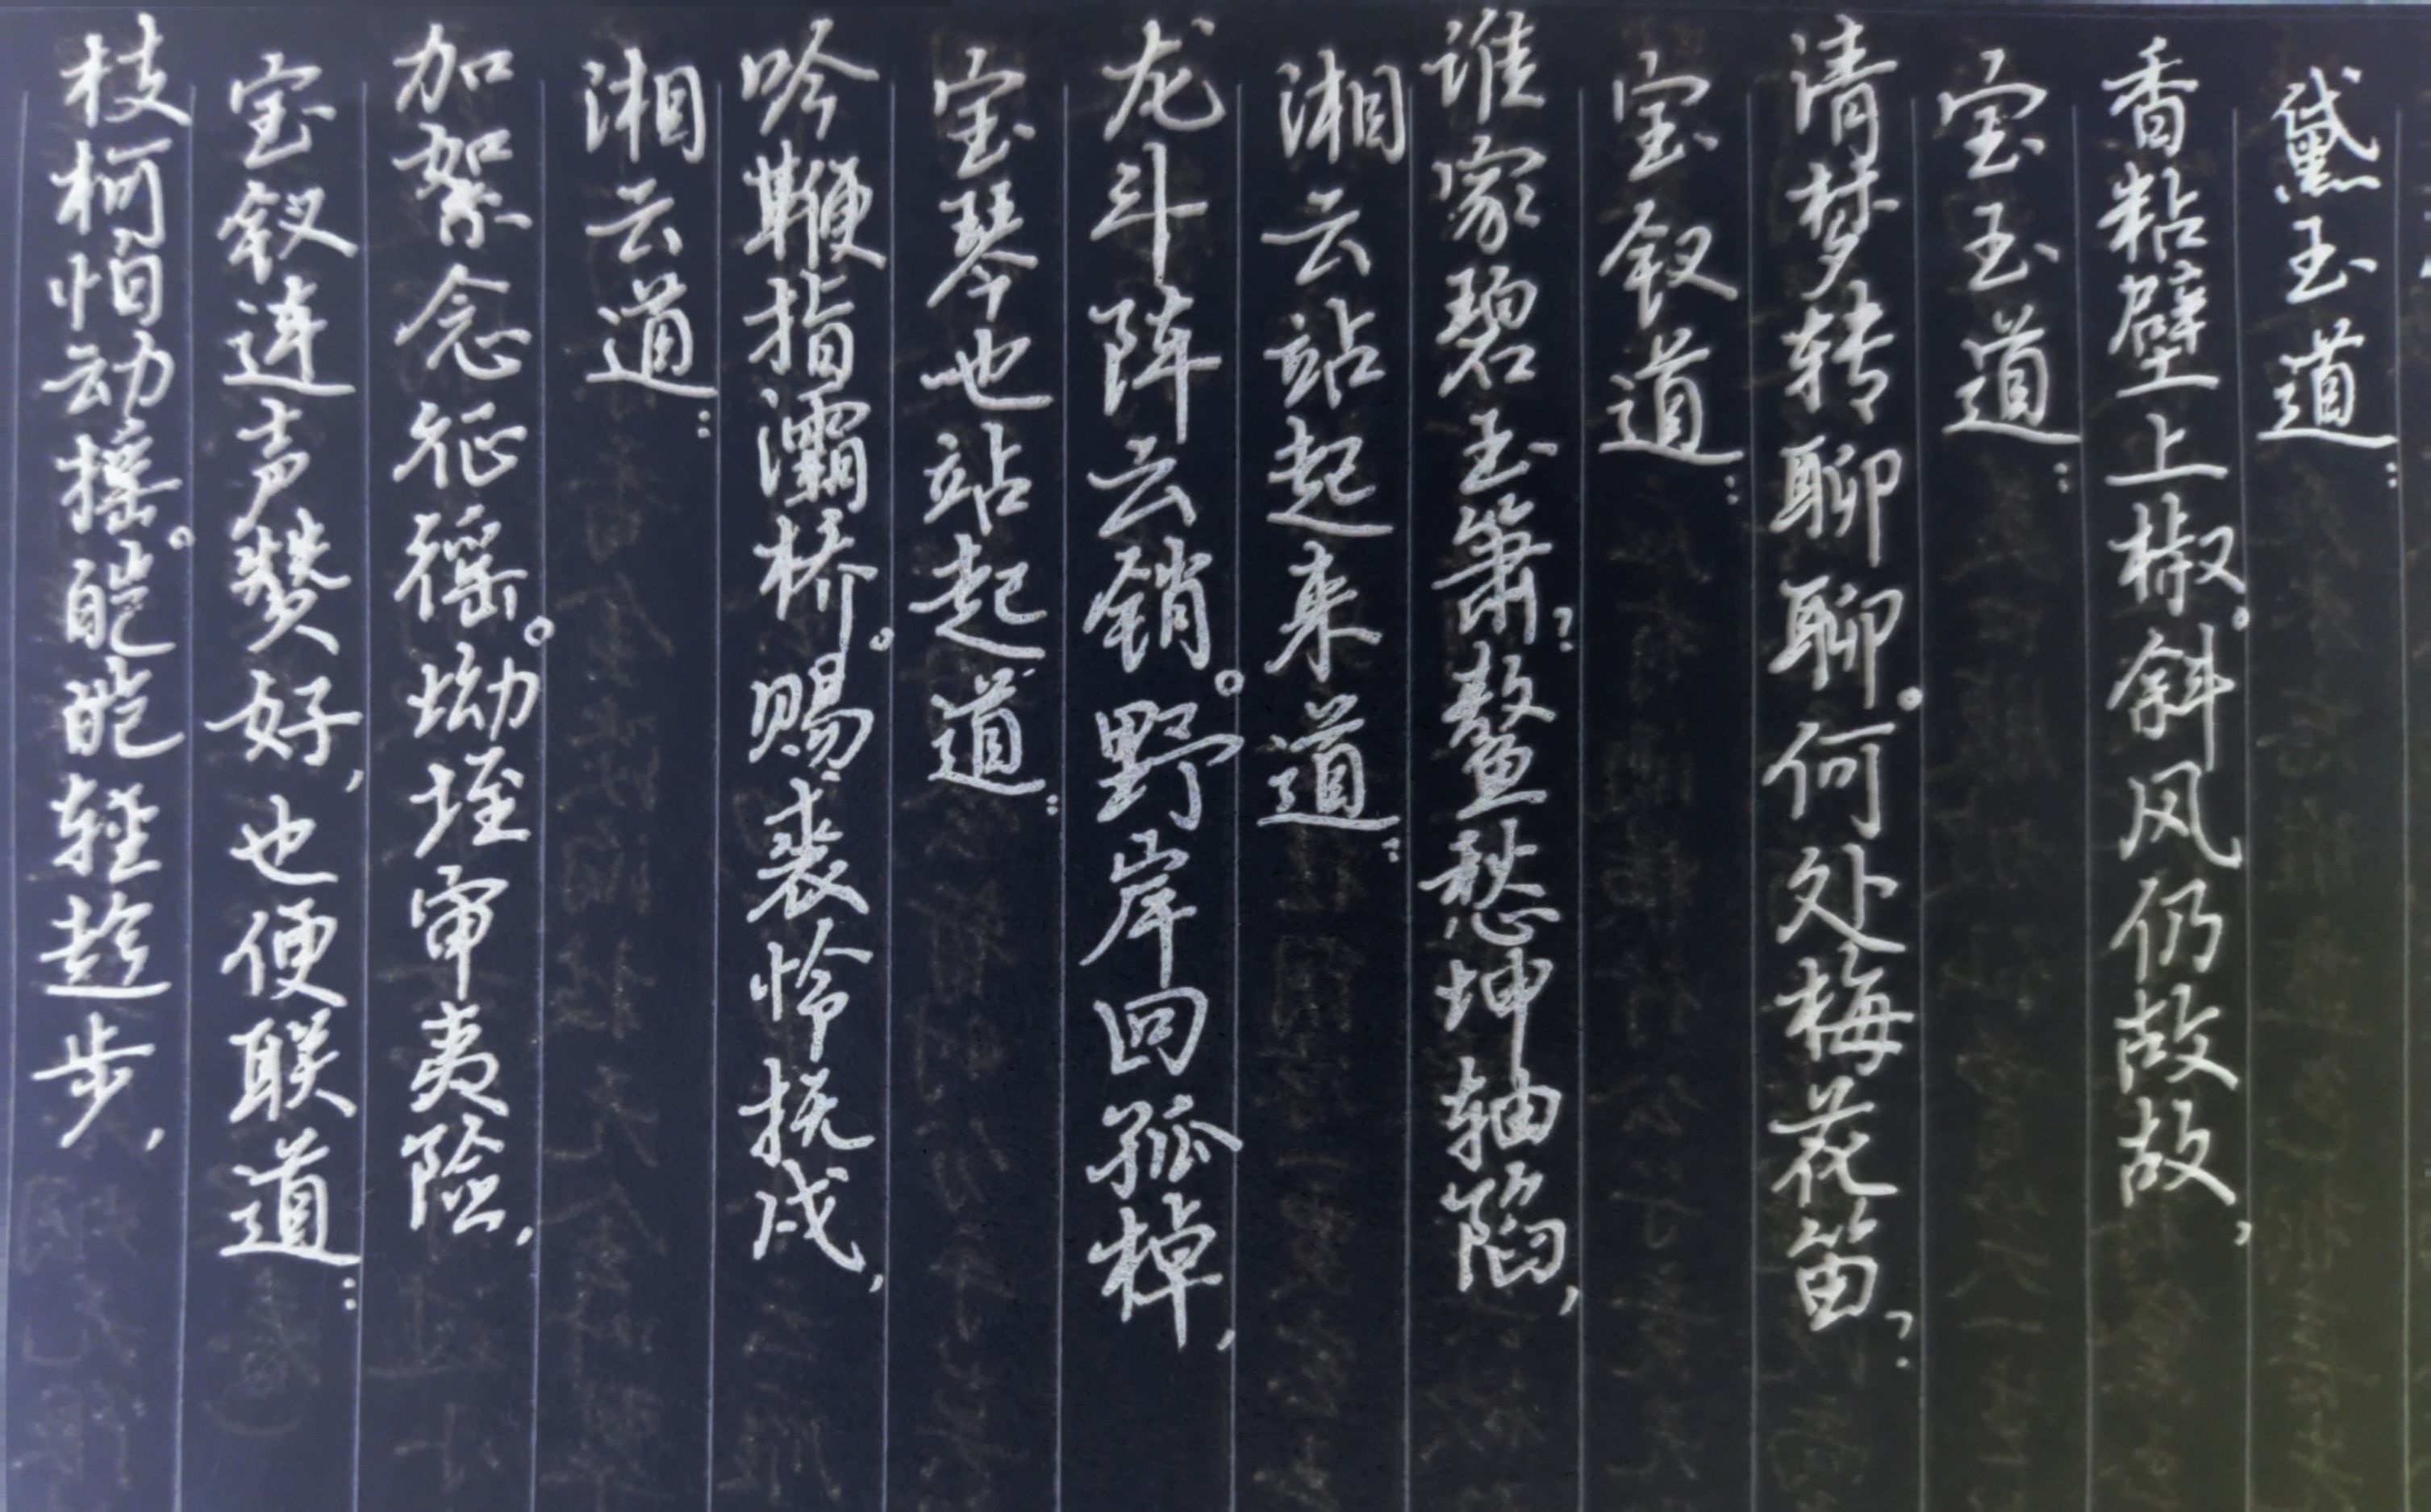 黛玉道：
香粘壁上椒。斜风仍故故，
宝玉道：
清梦转聊聊。何处梅花笛？
宝钗道：
谁家碧玉箫？鳌愁坤轴陷，
湘云站起来道：
龙斗阵云销。野岸回孤棹，
宝琴也站起道：
吟鞭指灞桥。赐裘怜抚戍，
湘云道：
加絮念征徭。坳垤审夷险，
宝钗连声赞好，也便联道：
枝柯怕动摇。皑皑轻趁步，